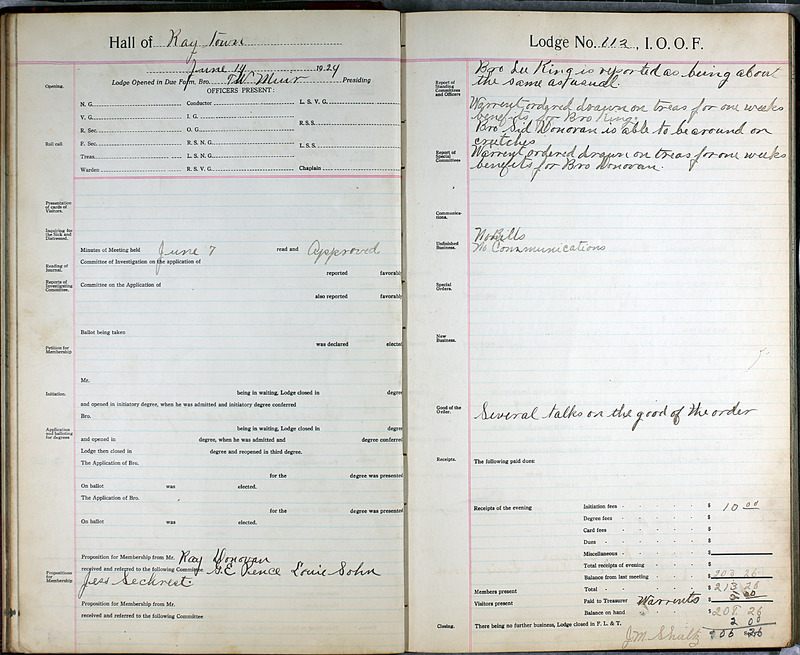 Hall of Ray Town
June 14 1924
Opening.
Lodge Opened in Due Form, Bro. T.W. Muir Presiding
OFFICERS PRESENT:
N. G. Conductor L. S. V. G.
V. G. I. G.
R. Sec. O. G. R.S.S.
Roll call
F. Sec. R. S. N. G. L. S. S.
Treas. L. S. N. G.
Warden R. S. V. G. Chaplain
Presentation of cards of Visitors.
Inquiring for the Sick and Distressed.
Minutes of Meeting held June 7 read and Approved
Reading of Journal.
Committee of Investigation on the application of
reported favorably
Reports of Investigating Committee.
Committee on the Application of
also reported favorably
Ballot being taken
was declared elected
Petition for Membership
Mr.
Initiation.
being in waiting, Lodge closed in degree
and opened in initiatory degree, when he was admitted and initiatory degree conferred
Bro.
Application and balloting for degrees
being in waiting, Lodge closed in degree
and opened in degree, when he was admitted and degree conferred
Lodge then closed in degree and reopened in third degree.
The Application of Bro.
for the degree was presented
On ballot was elected.
The Application of Bro.
for the degree was presented
On ballot was elected.
Propositions for Membership
Proposition for Membership from Mr. Ray Donovan
received and referred to the following Committee G.E. Pence Louie Sohn
Jess Sechrest.
Proposition for Membership from Mr.
received and referred to the following Committee
Lodge No. 113, I. O. O. F.
Report of Standing Committees and Officers
Bro Lee King is reported as being about
the same as usual.
Warrent ordered drawn on treas for one weeks
benefits for Bro King.
Bro Sid Donovan is able to be around on
crutches
Report of Special Committees
Warrent ordered drawn on treas for one weeks
benefits for Bro Donovan.
Communications.
Unfinished Business.
No Bills
No Communications
Special Orders.
New Business.
Good of the Order.
Several talks on the good of the order
Receipts.
The following paid dues:
Receipts of the evening Initiation fees $ 10 00
Degree fees $
Card fees $
Dues $
Miscellaneous $
Total receipts of evening $
Balance from last meeting $ 203 26
Members present Total $ 213 26
Visitors present Paid to Treasurer Warrents $
Balance on hand $ 208 26
Closing.
There being no further business, Lodge closed in F. L. & T. 2 00
J.M. Shultz 206 26